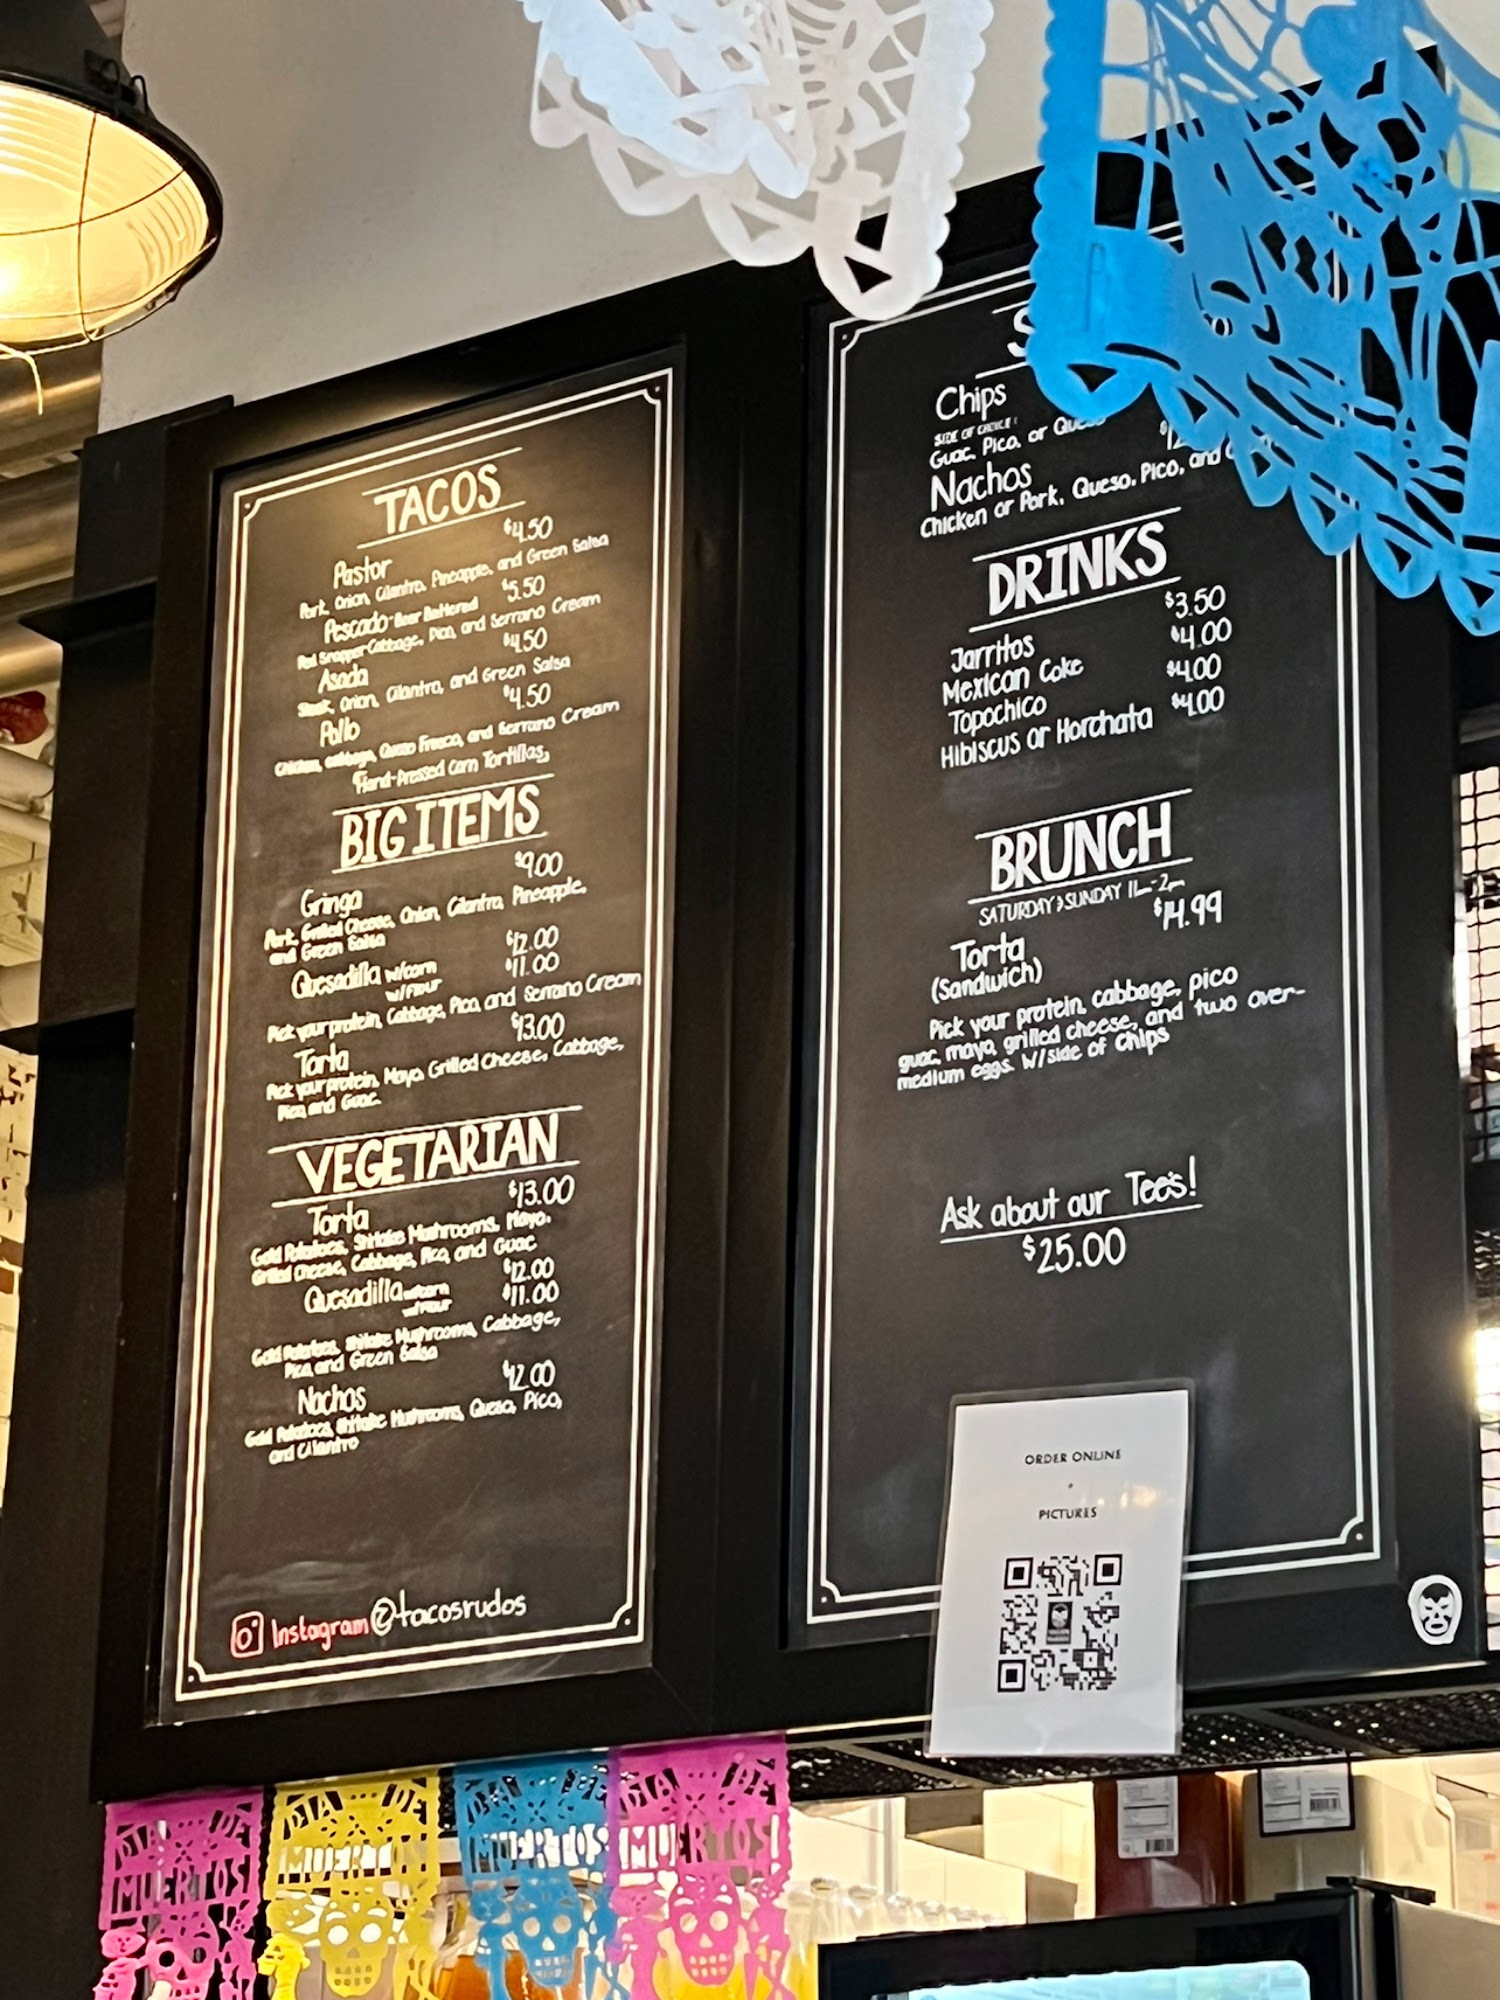 TACOS
Pastor $4.50
Pork, Onion, Cilantro, Pineapple, and Green Salsa
Pescado-Beer Battered $5.50
Red Snapper-Cabbage, Pico, and Serrano Cream
Asada $4.50
Steak, Onion, Cilantro, and Green Salsa
Pollo $4.50
Chicken, cabbage, Queso Fresco, and Serrano Cream
Hand-Pressed Corn Tortillas
BIG ITEMS
Gringa $9.00
Pork, Grilled Cheese, Onion, Cilantro, Pineapple,
and Green Salsa
Quesadilla w/corn $12.00
w/flour $11.00
Pick your protein, Cabbage, Pico, and Serrano Cream
Torta $13.00
Pick your protein, Mayo, Grilled Cheese, Cabbage,
Pico, and Guac.
VEGETARIAN
Torta $13.00
Gold Potatoes, Shitake Mushrooms, Mayo,
Grilled Cheese, Cabbage, Pico, and Guac
Quesadilla w/corn $12.00
w/flour $11.00
Gold Potatoes, Shitake Mushrooms, Cabbage,
Pico, and Green Salsa
Nachos $12.00
Gold Potatoes, Shitake Mushrooms, Queso, Pico,
and Cilantro
Instagram @tacosrudos
Chips
SIDE OF CHOICE:
Guac, Pico, or
Nachos
Chicken or Pork, Queso, Pico, and
DRINKS
Jarritos $3.50
Mexican Coke $4.00
Topochico $4.00
Hibiscus or Horchata $4.00
BRUNCH
SATURDAY & SUNDAY 11am-2pm
Torta $14.99
(Sandwich)
Pick your protein, cabbage, pico
guac, mayo, grilled cheese, and two over-
medium eggs. W/side of chips
Ask about our Tee's!
$25.00
ORDER ONLINE
+
PICTURES
DIA DE
MUERTOS
DIA DE
MUERTOS
DIA DE
MUERTOS
DIA DE
MUERTOS